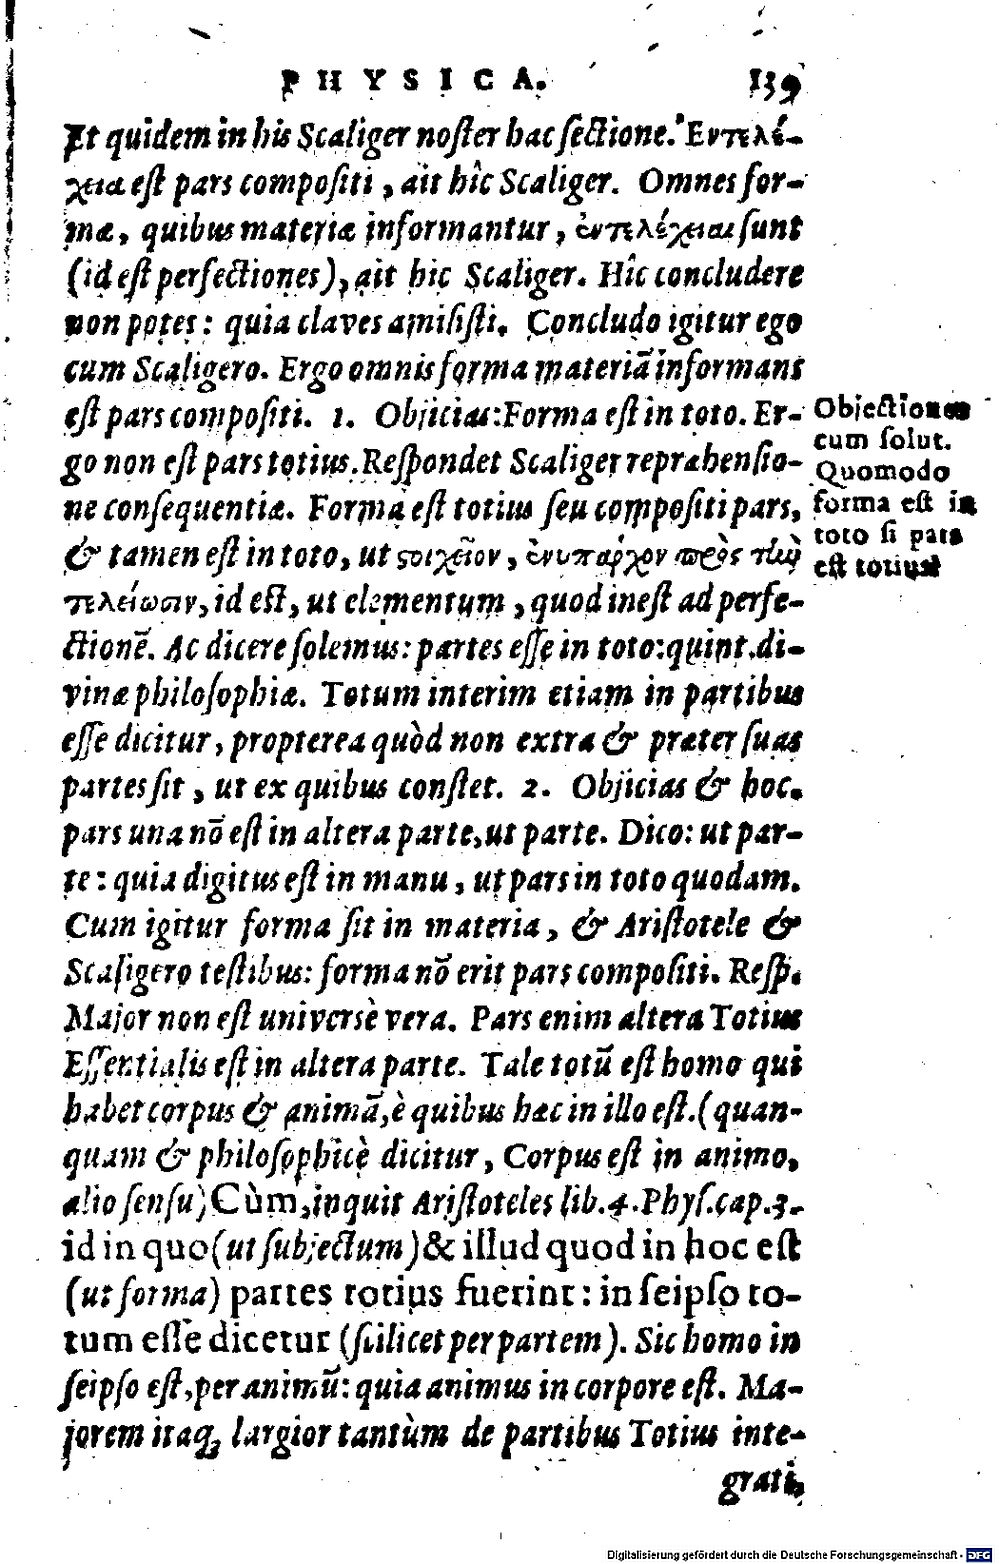 PHYSICA. 139
Et quidem in his Scaliger noſter hac ſectione. Ἐντελέ-
χεια eſt pars compoſiti, ait hîc Scaliger. Omnes for-
mæ, quibus materiæ informantur, ἐντελέχειαι ſunt
(id eſt perfectiones), ait hic Scaliger. Hîc concludere
non potes: quia claves amiſiſti. Concludo igitur ego
cum Scaligero. Ergo omnis forma materiã informans
eſt pars compoſiti. 1. Objicias: Forma eſt in toto. Er-
go non eſt pars totius. Reſpondet Scaliger repræhenſio-
ne conſequentiæ. Forma eſt totius ſeu compoſiti pars,
& tamen eſt in toto, ut ςοιχεῖον, ἐνυπάρχον πρὸς τὴν
τελείωσιν, id eſt, ut elementum, quod ineſt ad perfe-
ctionẽ. Ac dicere ſolemus: partes eſſe in toto: quint. di-
vinæ philoſophiæ. Totum interim etiam in partibus
eſſe dicitur, propterea quòd non extra & præter ſuas
partes ſit, ut ex quibus conſtet. 2. Objicias & hoc.
pars una nõ eſt in altera parte, ut parte. Dico: ut par-
te: quia digitus eſt in manu, ut pars in toto quodam.
Cum igitur forma ſit in materia, & Ariſtotele &
Scaligero teſtibus: forma nõ erit pars compoſiti. Reſp.
Major non eſt universè vera. Pars enim altera Totius
Eſſentialis eſt in altera parte. Tale totũ eſt homo qui
habet corpus & animã, è quibus hæc in illo eſt. (quan-
quam & philoſophicè dicitur, Corpus eſt in animo,
alio ſenſu) Cùm, inquit Ariſtoteles lib. 4. Phyſ. cap. 3.
id in quo (ut ſubjectum) & illud quod in hoc eſt
(ut forma) partes totius fuerint: in ſeipſo to-
tum eſſe dicetur (ſcilicet per partem). Sic homo in
ſeipſo eſt, per animũ: quia animus in corpore eſt. Ma-
jorem itaq; largior tantùm de partibus Totius inte-
grati,
Objectiones
cum ſolut.
Quomodo
forma eſt in
toto ſi pars
eſt totius
Digitalisierung gefördert durch die Deutsche Forschungsgemeinschaft - DFG